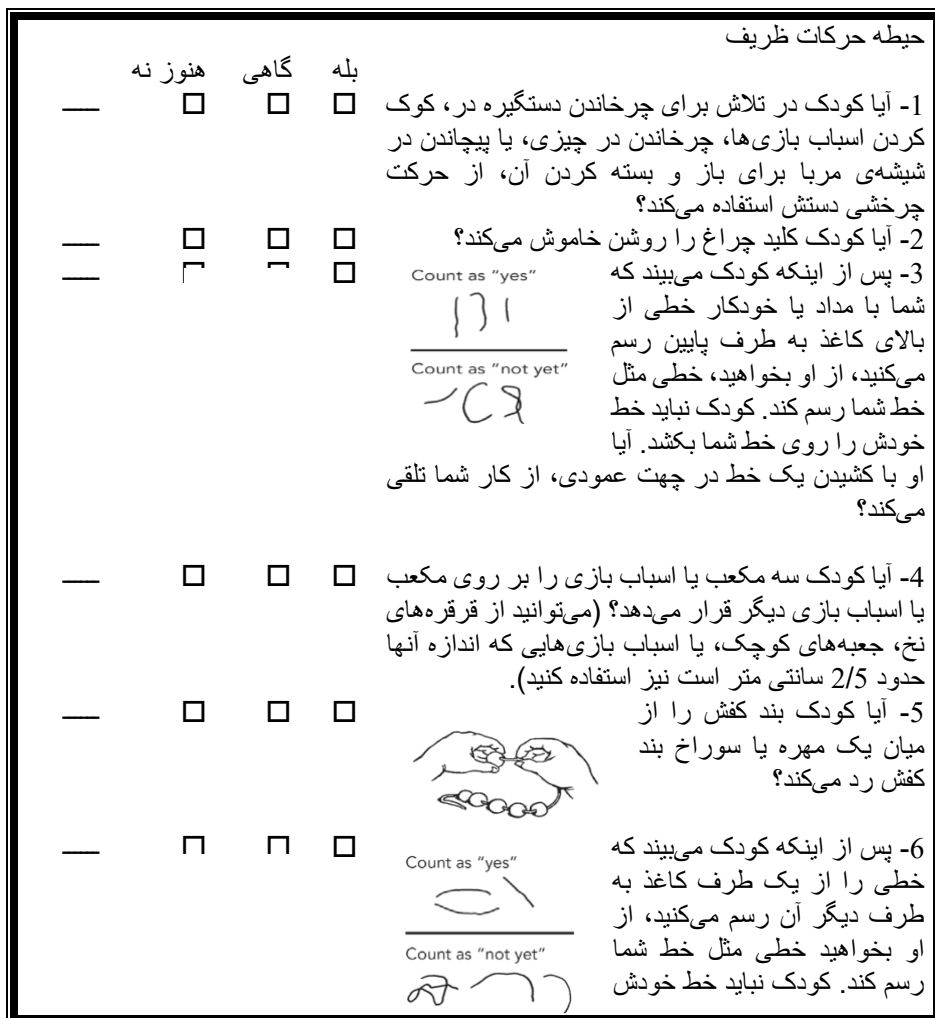 حیطه حرکات ظریف
بله گاهی هنوز نه
1- آیا کودک در تلاش برای چرخاندن دستگیره در، کوک
کردن اسباب بازی‌ها، چرخاندن در چیزی، یا پیچاندن در
شیشه‌ی مربا برای باز و بسته کردن آن، از حرکت
چرخشی دستش استفاده می‌کند؟
2- آیا کودک کلید چراغ را روشن خاموش می‌کند؟
3- پس از اینکه کودک می‌بیند که
شما با مداد یا خودکار خطی از
بالای کاغذ به طرف پایین رسم
می‌کنید، از او بخواهید، خطی مثل
خط شما رسم کند. کودک نباید خط
خودش را روی خط شما بکشد. آیا
او با کشیدن یک خط در جهت عمودی، از کار شما تلقی
می‌کند؟
Count as "yes"
Count as "not yet"
4- آیا کودک سه مکعب یا اسباب بازی را بر روی مکعب
یا اسباب بازی دیگر قرار می‌دهد؟ (می‌توانید از قرقره‌های
نخ، جعبه‌های کوچک، یا اسباب بازی‌هایی که اندازه آنها
حدود 2/5 سانتی متر است نیز استفاده کنید).
5- آیا کودک بند کفش را از
میان یک مهره یا سوراخ بند
کفش رد می‌کند؟
6- پس از اینکه کودک می‌بیند که
خطی را از یک طرف کاغذ به
طرف دیگر آن رسم می‌کنید، از
او بخواهید خطی مثل خط شما
رسم کند. کودک نباید خط خودش
Count as "yes"
Count as "not yet"